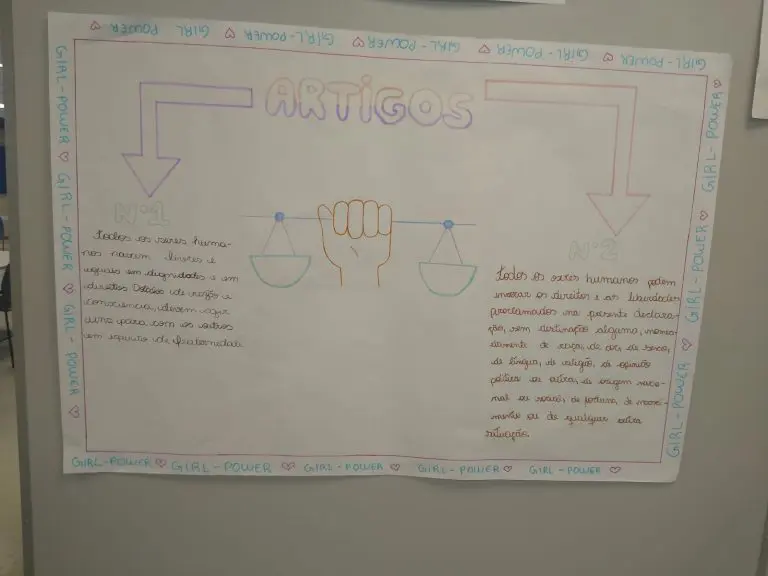 GIRL-POWER GIRL-POWER GIRL-POWER GIRL-POWER GIRL-POWER
ARTIGOS
Nº1
Todos os seres huma-
nos nascem livres e
iguais em dignidades e em
direitos Dotados de razão e
consciencia, devem agir
uns para com os outros
em espirito de fraternidade
Nº2
Todos os seres humanos podem
invocar os direitos e as liberdades
proclamados na presente declara-
ção, sem distinação alguma, nomea-
damente de raça, de cor, de sexo,
de língua, de religião, de opinião
politica ou outra, de origem nacio-
nal ou social, de fortuna, de nasci-
mento ou de qualquer outra
situação.
GIRL-POWER GIRL-POWER GIRL-POWER
GIRL-POWER GIRL-POWER GIRL-POWER
GIRL-POWER GIRL-POWER GIRL-POWER GIRL-POWER GIRL-POWER